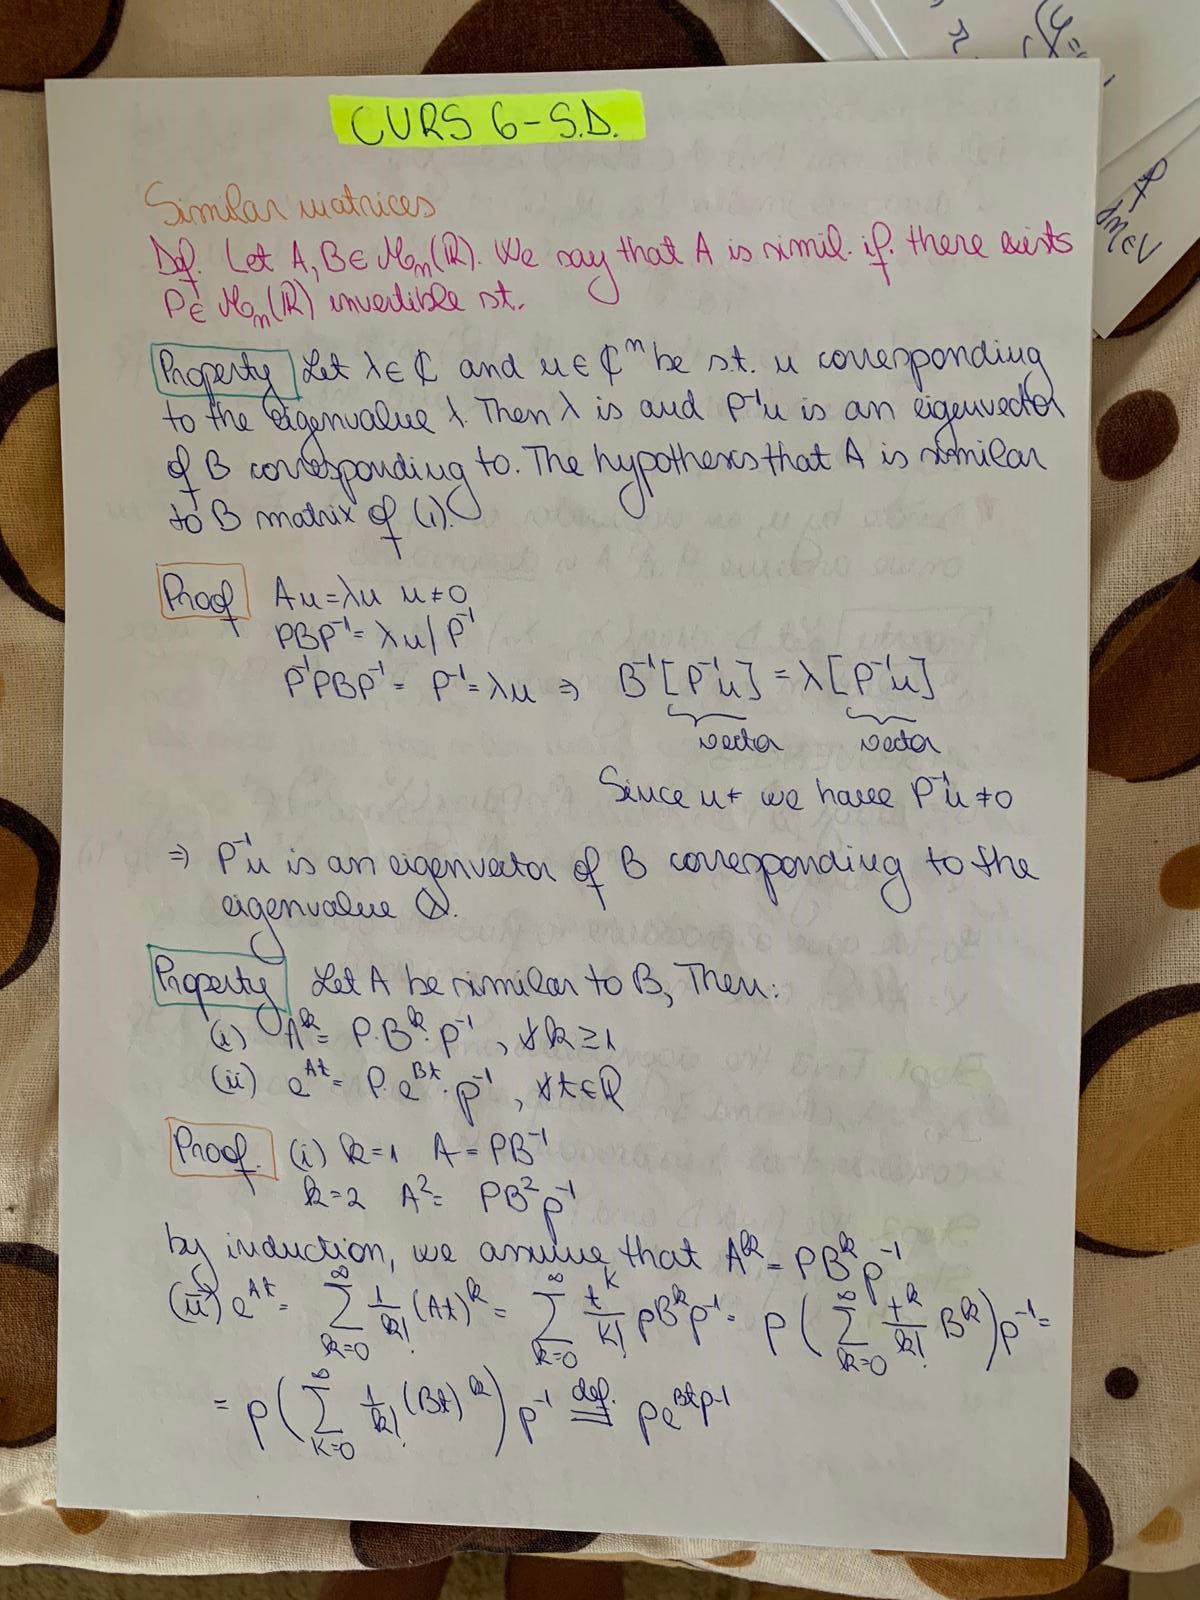 CURS 6 - S.D.
Similar matrices
Def. Let A, B ∈ Mn(R). We say that A is simil. if. there exists
P ∈ Mn(R) invertible st.
Property Let λ ∈ ₵ and u ∈ ₵ⁿ be s.t. u corresponding
to the eigenvalue λ. Then λ is and P⁻¹u is an eigenvector
of B corresponding to. The hypothesis that A is similar
to B matrix of (1).
Proof Au = λu u ≠ 0
PBP⁻¹ = λu / P⁻¹
P⁻¹PBP⁻¹ = P⁻¹ = λu ⇒ B⁻¹[P⁻¹u] = λ[P⁻¹u]
vector vector
Since u≠ we have P⁻¹u ≠ 0
⇒ P⁻¹u is an eigenvector of B corresponding to the
eigenvalue λ.
Property Let A be similar to B, Then:
(i) Aᵏ = P·Bᵏ·P⁻¹, ∀k ≥ 1
(ii) e^{At} = P·e^{Bt}·P⁻¹, ∀t ∈ R
Proof. (i) k=1 A = PB⁻¹
k=2 A² = PB²P⁻¹
by induction, we assume that Aᵏ = PBᵏP⁻¹
(ii) e^{At} = ∑_{k=0}^{∞} 1/k! (At)ᵏ = ∑_{k=0}^{∞} tᵏ/k! PBᵏP⁻¹ = P(∑_{k=0}^{∞} tᵏ/k! Bᵏ)P⁻¹ =
= P(∑_{k=0}^{∞} 1/k! (Bt)ᵏ)P⁻¹ def. = Pe^{Bt}P-1